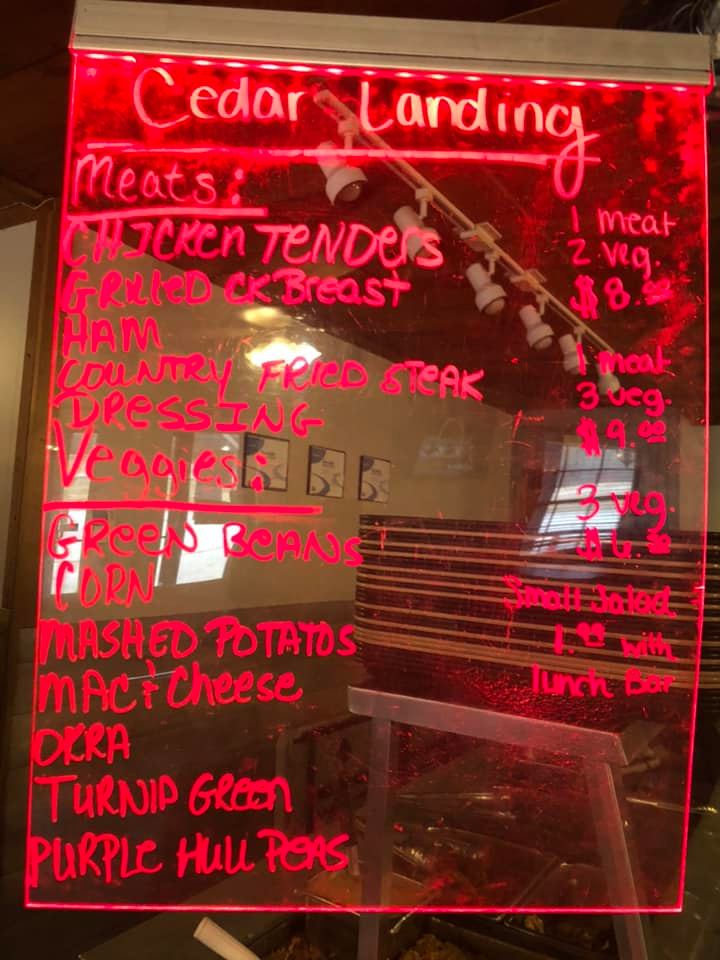 Cedar Landing
Meats:
CHICKEN TENDERS
GRILLED CK Breast
HAM
COUNTRY FRIED STEAK
DRESSING
Veggies:
GREEN BEANS
CORN
MASHED POTATOS
MAC + Cheese
OKRA
TURNIP GREEN
PURPLE HULL PEAS
1 meat
2 veg.
$8.00
1 meat
3 veg.
$9.00
3 veg.
$6.50
Small Salad
1.99 with
lunch Bar